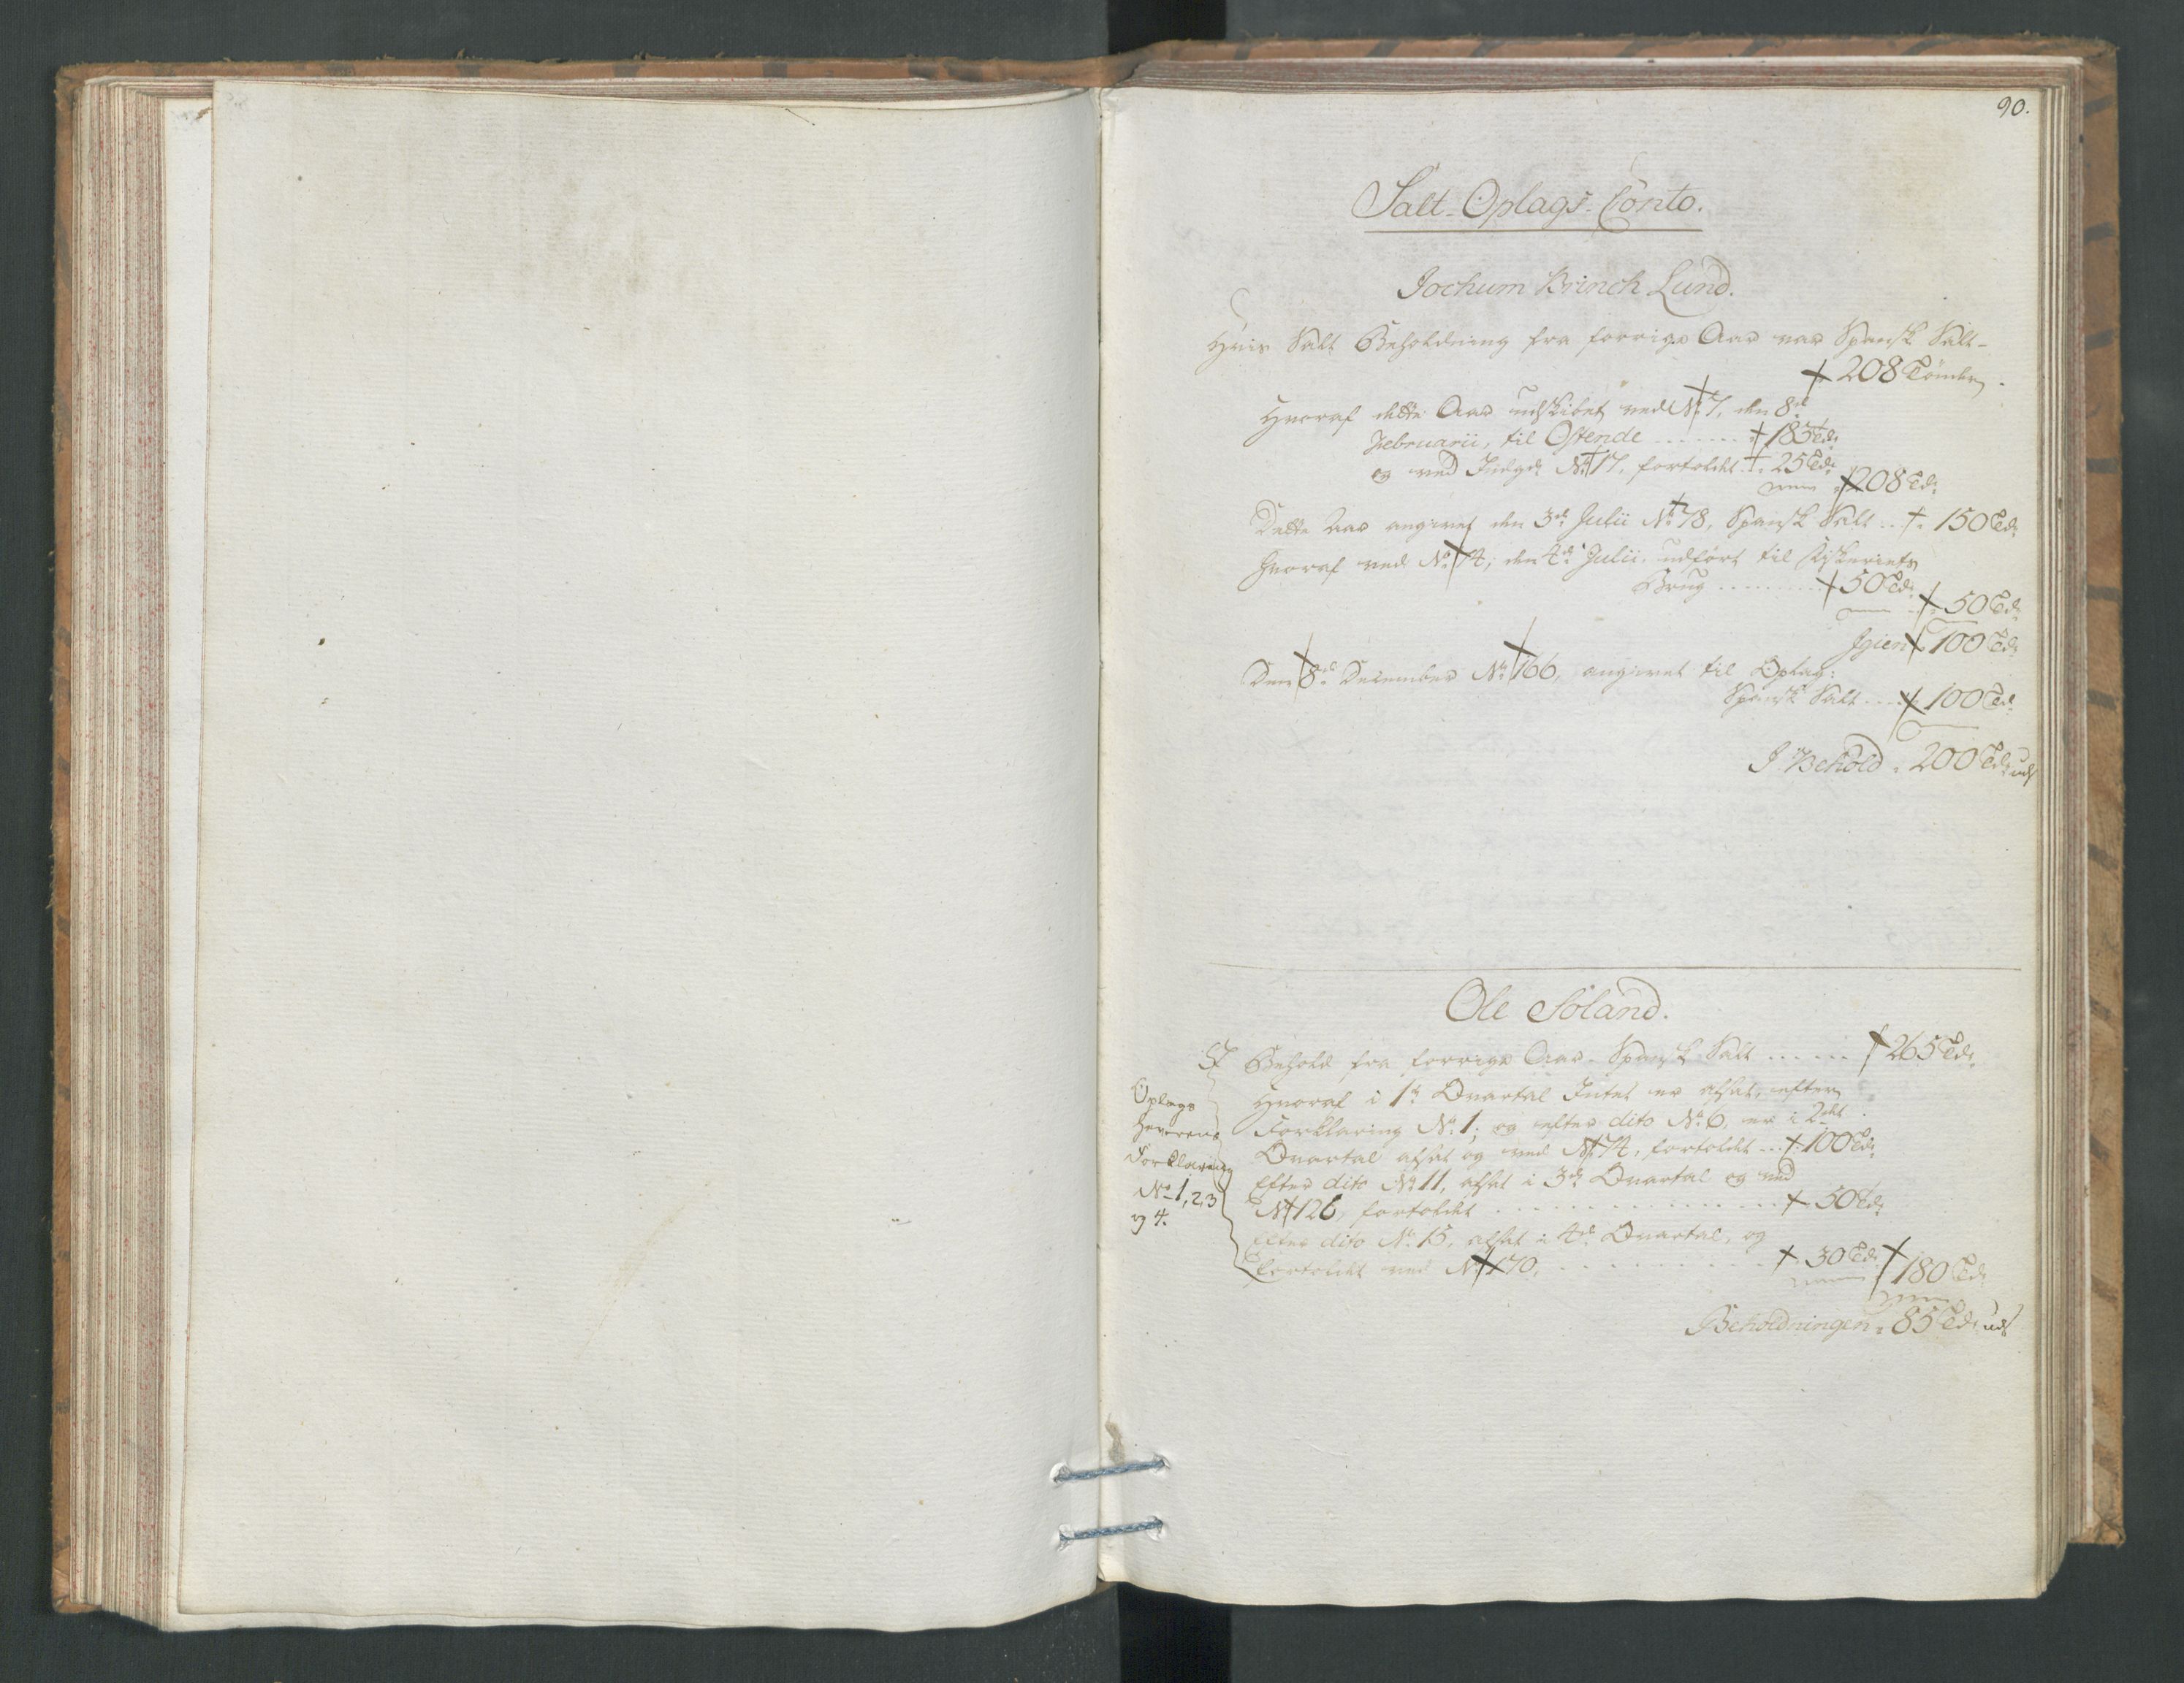 90.
Salt-Oplags-Conto.
Jochum Brinch Lund.
Hvis Salt Beholdning fra forrige Aar var Spansk Salt-
208 Tönder.
Hvoraf dette Aar udskibet ved No 7, den 8de
Februarii, til Ostende ....... 183 Tdr
og ved Indgd No 17, fortoldet 25 Tdr
208 Tdr
Dette Aar angivet den 3de Julii No 78, Spansk Salt .. 150 Td:
hvoraf ved No 74, den 4de Julii, udført til Fiskeriets
Brug .......... 50 Td:
50 Td:
Igien 100 Td:
Den 8de December No 166, angivet til Oplag:
Spansk Salt .... 100 Td:
I Behold 200 Td:
Ole Søland.
I Behold fra forrige Aar Spansk Salt ...... 265 Td:
Oplags
Forklaring
No 1, 2, 3
og 4.
Hvoraf i 1te Qvartal Intet er afsat, efter
Forklaring No 1; og efter dito No 6, er i 2det
Qvartal afsat og ved No 74, fortoldet ... 100 Td:
Efter dito No 11, afsat i 3de Qvartal og ved
No 126, fortoldet .............. 50 Td:
Efter dito No 15, afsat i 4de Qvartal, og
fortoldet ved No 170, .......... 30 Td:
180 Td:
Beholdningen 85 Td: